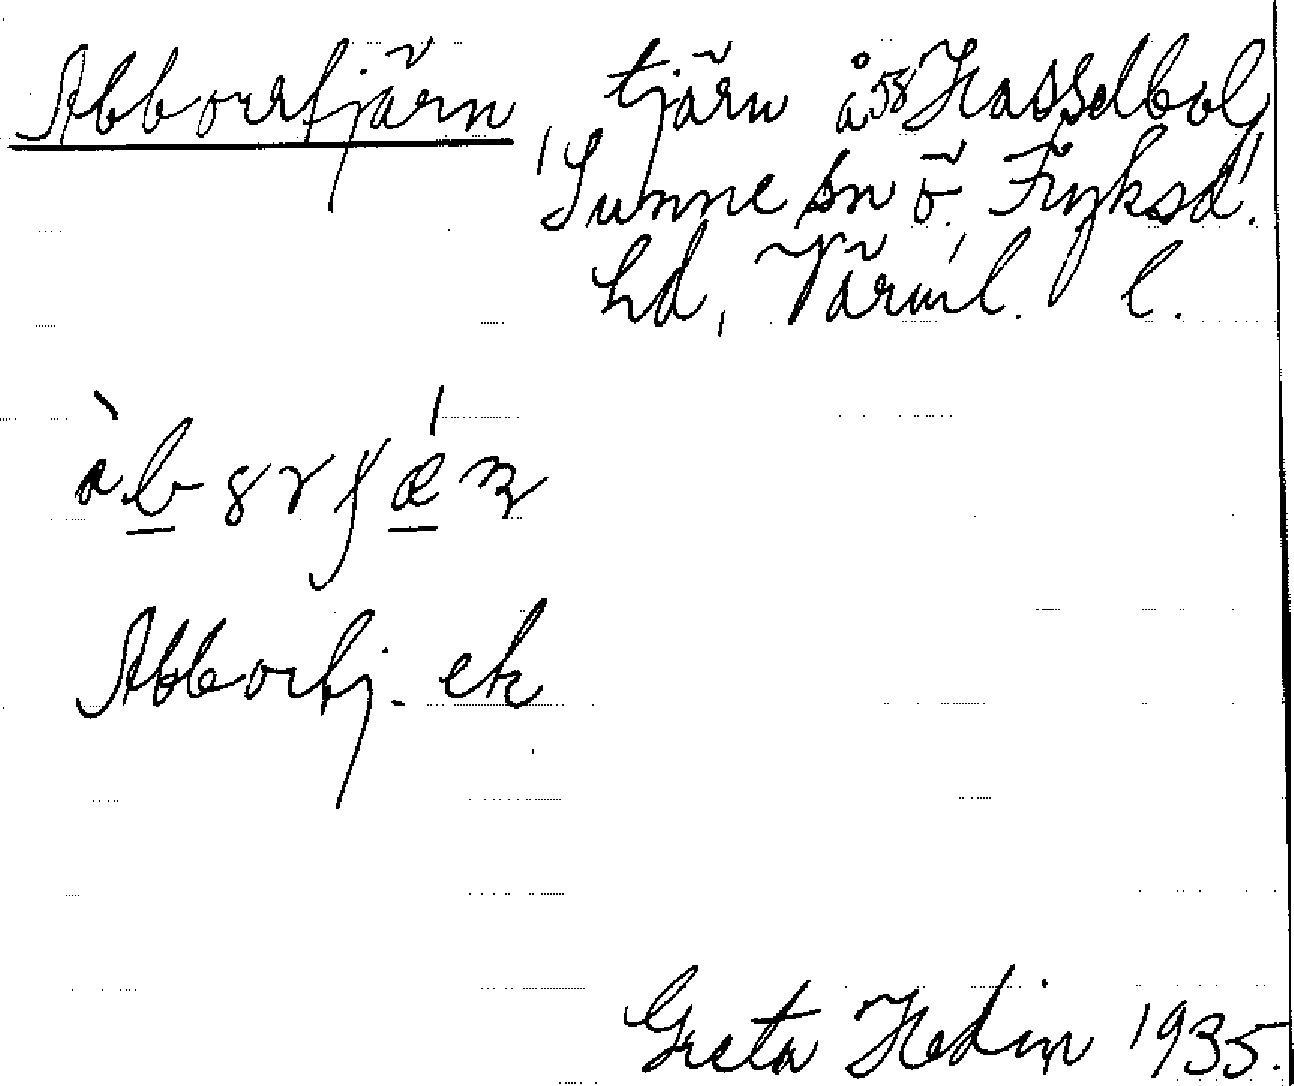 Abborrtjärn, tjärn å 58 Hasselbol,
Sunne sn ö. Fryksd.
hd, Värml. l.
Abbortj. ek
Greta Hedin 1935.